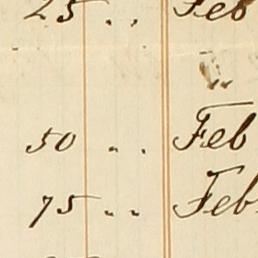 25 .. Feb
"
50 .. Feb
75 .. Feb